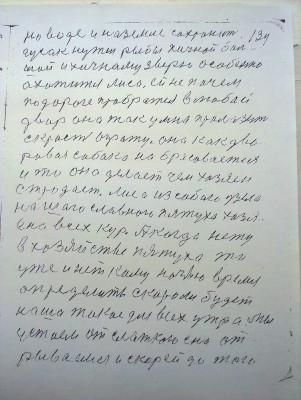 на воде и на земле сохранит. 134
гусак нужен рыбы хичной бол
шой и хичнаму зверю особенно
охотится лиса, ей не почем
по дороге пробратся в любой
двор она так умна пролезит
скрость ограту. она как дво
ровая собака на брасовается
и то она делает чем хозяен
страдает. лиса из собого узела
нашаго славного пятуха хозя-
ена всех кур. А когда нету
в хозяйстве пятуха то
уже и нет кому ночью время
определить скоро ли будет
наша такое для всех утра мы
устаем от слаткого сна от
рываемся и скорей до того